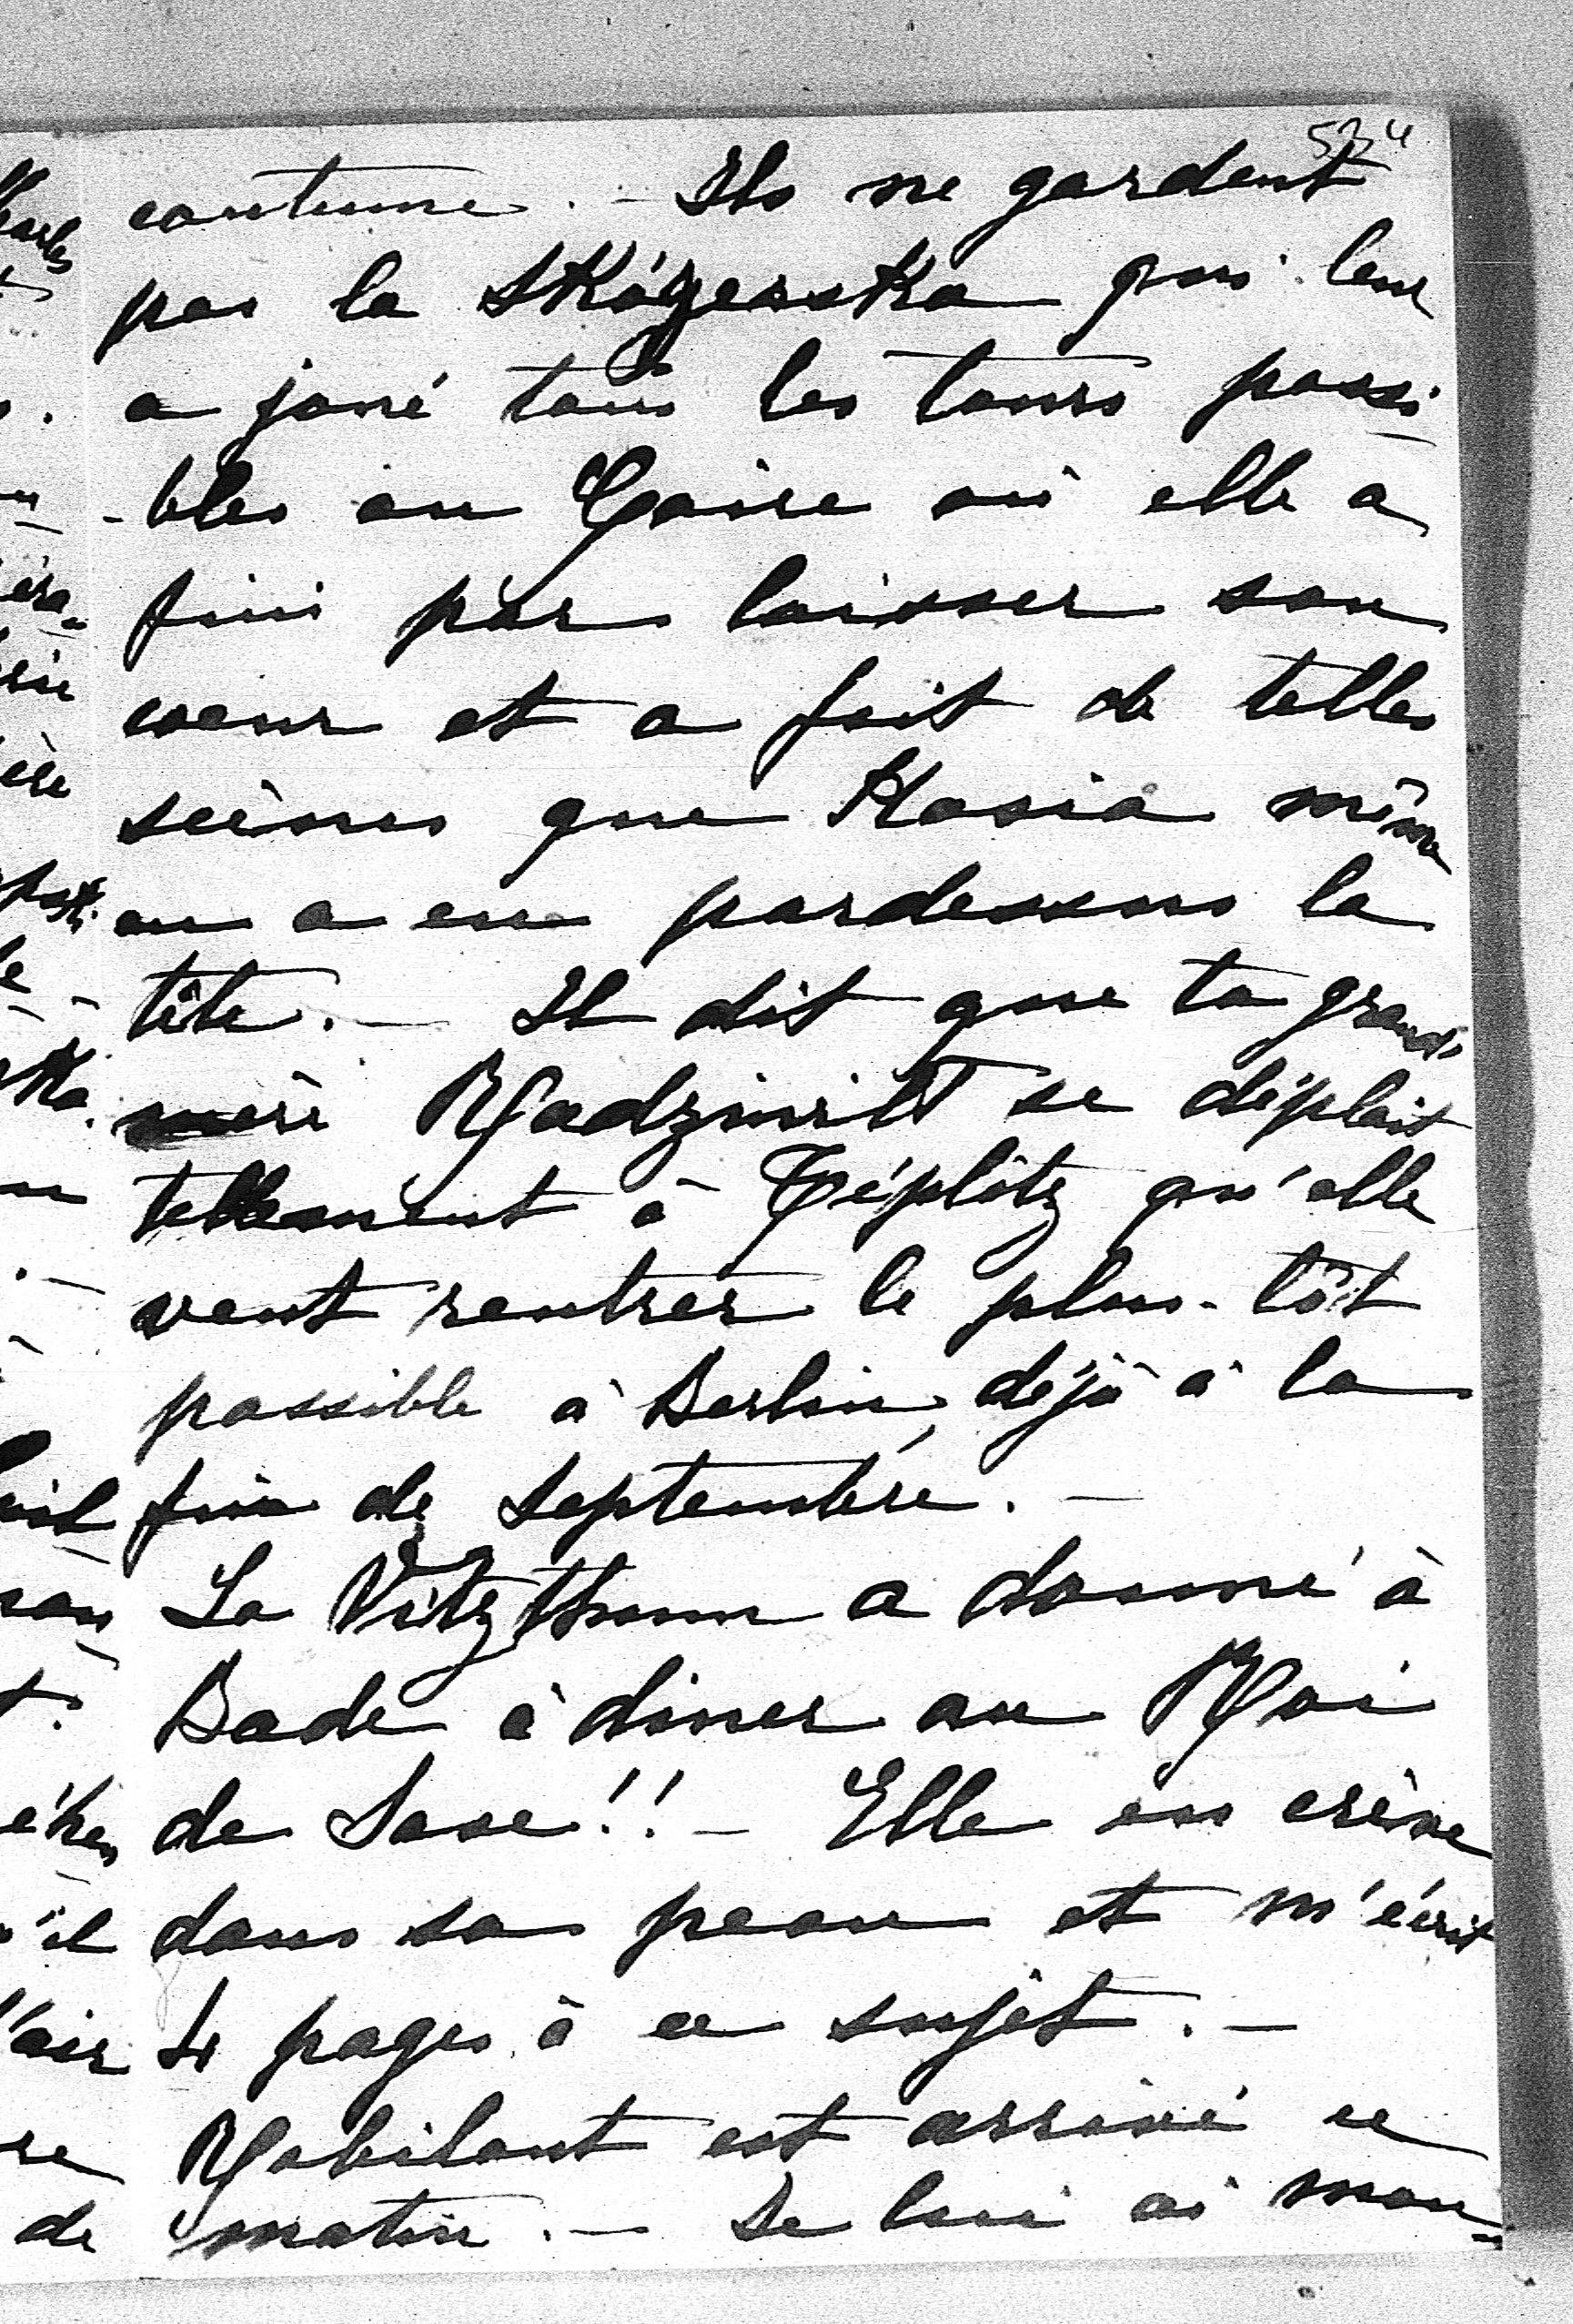 534
coutume. - Ils ne gardent
pas la Skózerska qui leur
a joué tous les tours possi-
-bles au Caire où elle a
fini par laisser son
coeur et a fait de telles
scènes que Kasia même
en a eu pardessus la
tête. - Il dit que ta grand'
mère Radziwill se déplait
tellement à Téplitz qu'elle
veut rentrer le plus-tôt
possible à Berlin, déjà à la
fin de Septembre. -
La Vitzthum a donné à
Bade à diner au Roi
de Saxe!! - Elle en crève
dans sa peau et m'écrit
4 pages à ce sujet. -
Robilant est arrivé ce
matin. - Je lui ai mon-